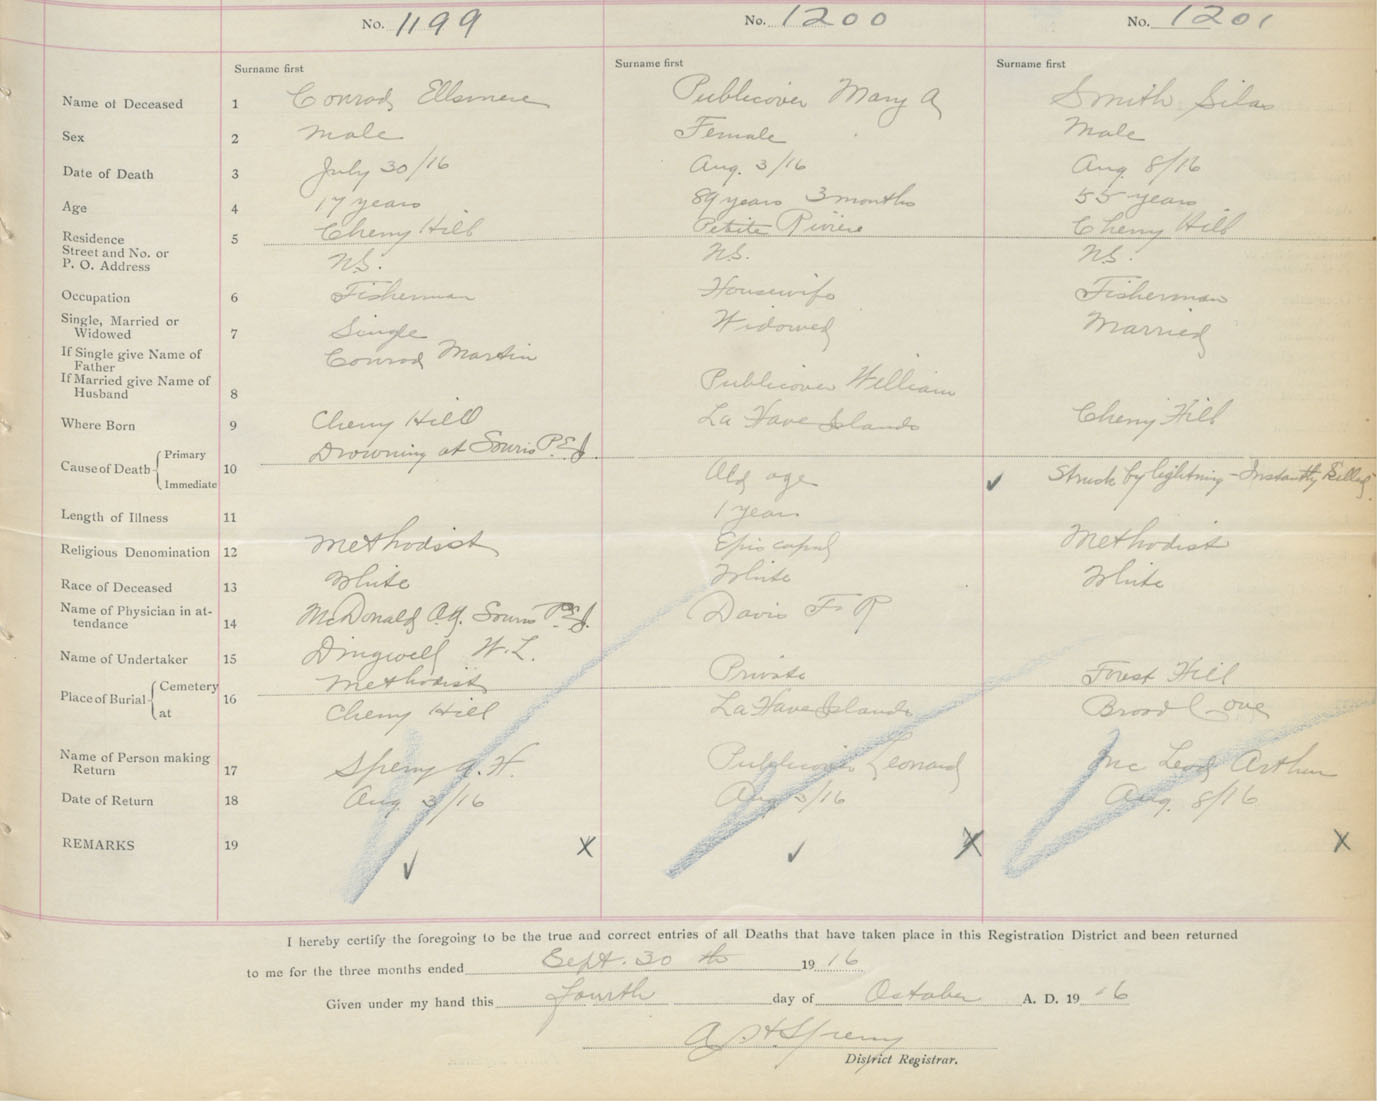 No. 1199 No. 1200 No. 1201
Surname first Surname first Surname first
Name of Deceased 1 Conrad Ellsmere Publicover Mary A Smith Silas
Sex 2 Male Female Male
Date of Death 3 July 30/16 Aug. 3/16 Aug 8/16
Age 4 17 years 89 years 3 months 55 years
Residence 5 Cherry Hill Petite Riviere Cherry Hill
Street and No. or
P. O. Address N.S. N.S. N.S.
Occupation 6 Fisherman Housewife Fisherman
Single, Married or
Widowed 7 Single Widowed Married
If Single give Name of
Father Conrad Martin
If Married give Name of
Husband 8 Publicover William
Where Born 9 Cherry Hill La Have Islands Cherry Hill
Cause of Death Primary Drowning at Souris P.E.I.
10 Old age Struck by lightning - Instantly Killed
Immediate
Length of Illness 11 1 year
Religious Denomination 12 Methodist Episcopal Methodist
Race of Deceased 13 White White White
Name of Physician in at-
tendance 14 McDonald A.A. Souris P.E.I. Davis F R
Name of Undertaker 15 Dingwell W.L.
Place of Burial Cemetery 16 Methodist Private Forest Hill
at Cherry Hill La Have Islands Broad Cove
Name of Person making
Return 17 Sperry A.H. Publicover Leonard Mc Leod Arthur
Date of Return 18 Aug 3/16 Aug 3/16 Aug. 8/16
REMARKS 19 X X X
I hereby certify the foregoing to be the true and correct entries of all Deaths that have taken place in this Registration District and been returned
to me for the three months ended Sept. 30 th 1916
Given under my hand this fourth day of October A. D. 1916
A H Sperry
District Registrar.